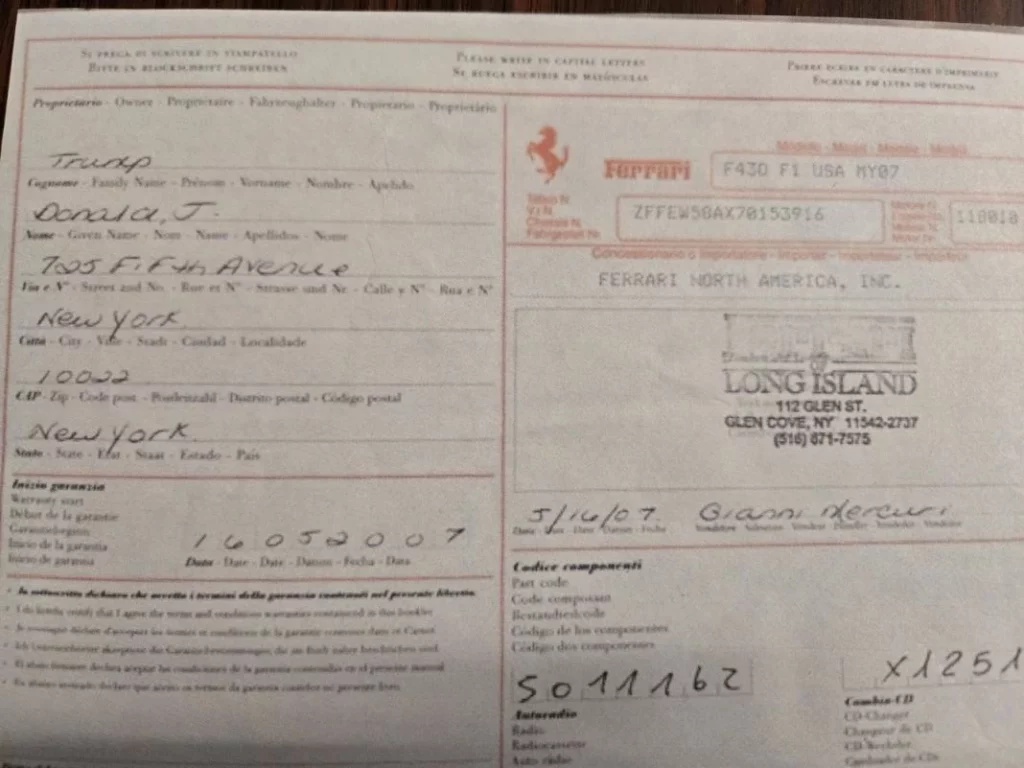 SI PREGA DI SCRIVERE IN STAMPATELLO
BITTE IN BLOCKSCHRIFT SCHREIBEN
PLEASE WRITE IN CAPITAL LETTERS
SE RUEGA ESCRIBIR EN MAYÚSCULAS
PRIERE ECRIRE EN CARACTERE D'IMPRIMERIE
ESCREVER EM LETRA DE IMPRENSA
Proprietario - Owner - Proprietaire - Fahrzeughalter - Propietario - Proprietário
Trump
Cognome - Family Name - Prénom - Vorname - Nombre - Apelido
Donald, J.
Nome - Given Name - Nom - Name - Apellidos - Nome
725 Fifth Avenue
Via e N° - Street and No. - Rue et N° - Strasse und Nr. - Calle y N° - Rua e N°
New York
Città - City - Ville - Stadt - Ciudad - Localidade
10022
CAP - Zip - Code post. - Postleitzahl - Distrito postal - Código postal
New York
Stato - State - Etat - Staat - Estado - País
Inizio garanzia
Warranty start
Début de la garantie
Garantiebeginn
Inicio de la garantía
Início de garantia
16052007
Data - Date - Date - Datum - Fecha - Data
• Io sottoscritto dichiaro che accetto i termini della garanzia contenuti nel presente libretto.
Ferrari
Modello - Model - Modèle - Modell
F430 F1 USA MY07
Telaio N.
V.I.N.
Chassis N.
Fahrgestell Nr.
ZFFEW58AX70153916
Motore N.
118010
Concessionario o Importatore - Importer - Importateur - Importeur
FERRARI NORTH AMERICA, INC.
LONG ISLAND
112 GLEN ST.
GLEN COVE, NY 11542-2737
(516) 671-7575
5/16/07 Gianni Mercuri
Data - Date - Date - Datum - Fecha
Codice componenti
Part code
Code composant
Bestandteilcode
Código de los componentes
Código dos componentes
5011162
X1251
Autoradio
Radio
Radiocassette
Auto rádio
Cambio-CD
CD-Changer
Changeur de CD
CD-Wechsler
Cambiador de CDs